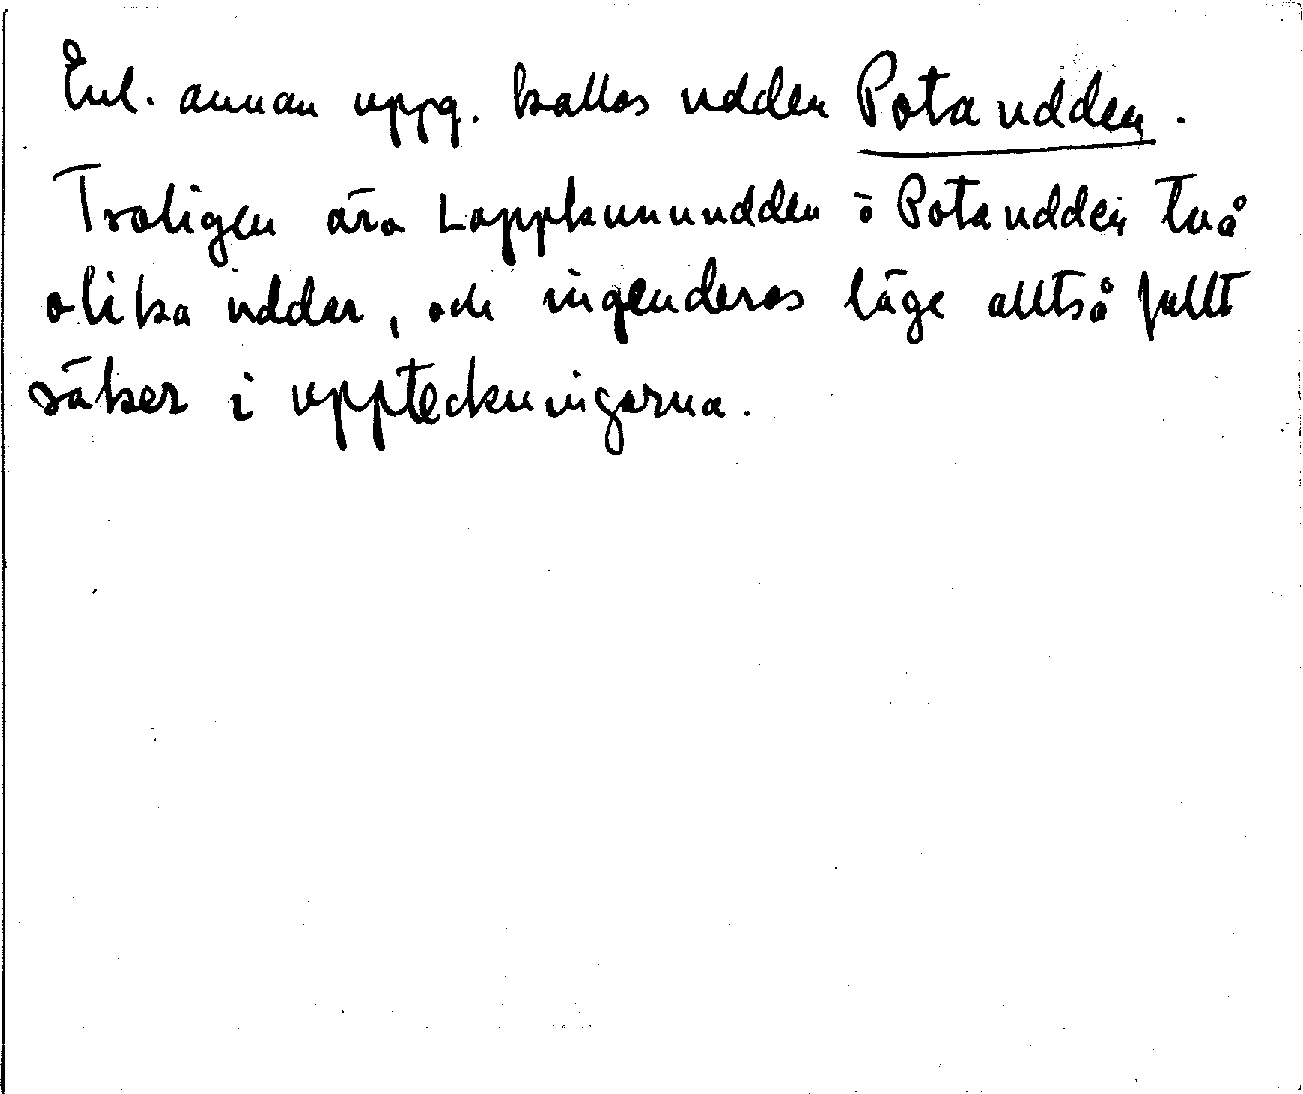 Enl. annan uppg. kallas udden Potaudden.
Troligen ära Lappkunuudden o Potaudden två
olika uddar, och ingenderas läge alltså fullt
säker i uppteckningarna.